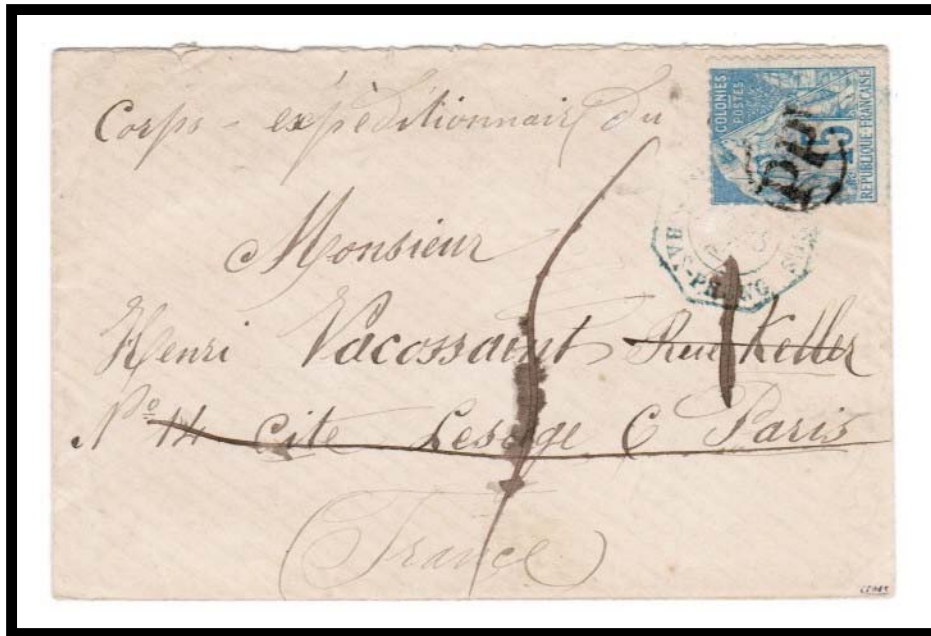 Corps - expéditionnair du
COLONIES
POSTES
15
REPUBLIQUE FRANÇAISE
PP
HAI-PHONG
Monsieur
Henri Vacossaint Rue Keller
Nº 14 cite Lesage C Paris
(France)